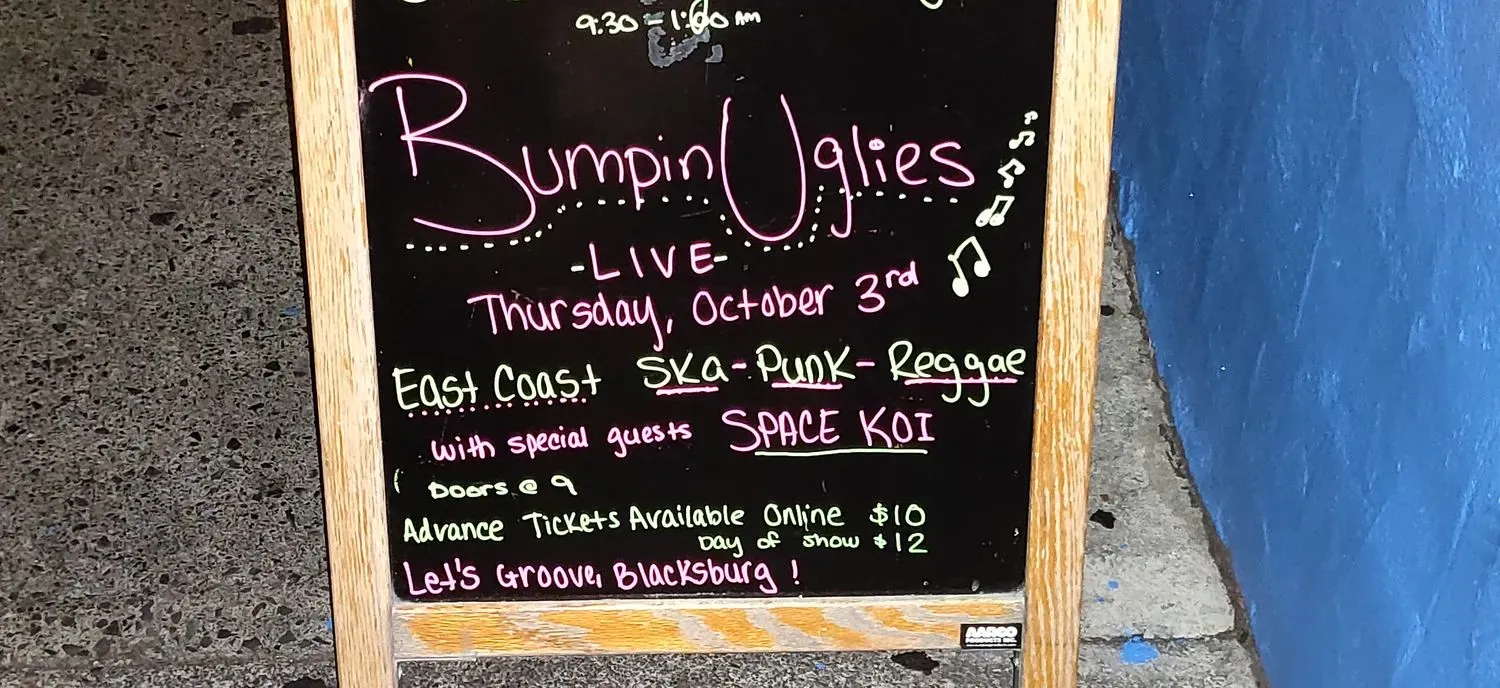 9:30 - 1:00 AM
Bumpin Uglies
-LIVE-
Thursday, October 3rd
East Coast Ska-Punk-Reggae
with special guests SPACE KOI
Doors @ 9
Advance Tickets Available Online $10
Day of show $12
Let's Groove, Blacksburg!
AARCO
PRODUCTS INC.